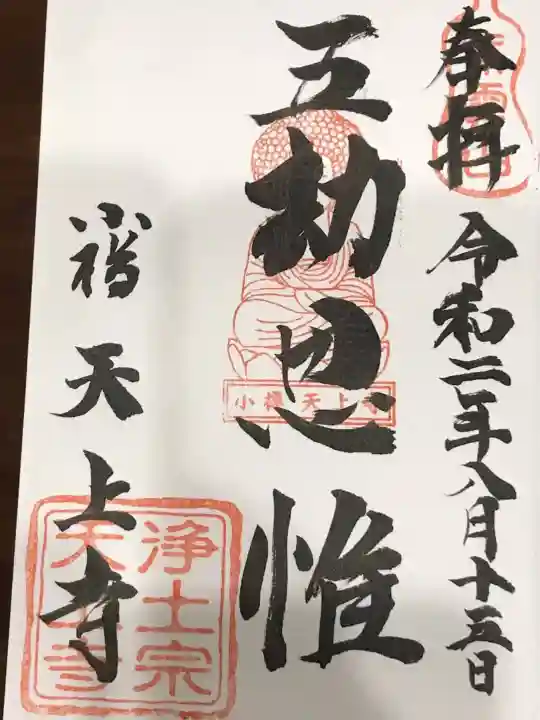 奉拝 令和二年八月十五日
五劫思惟
小樽 天上寺
小樽天上寺
浄土宗
天上寺